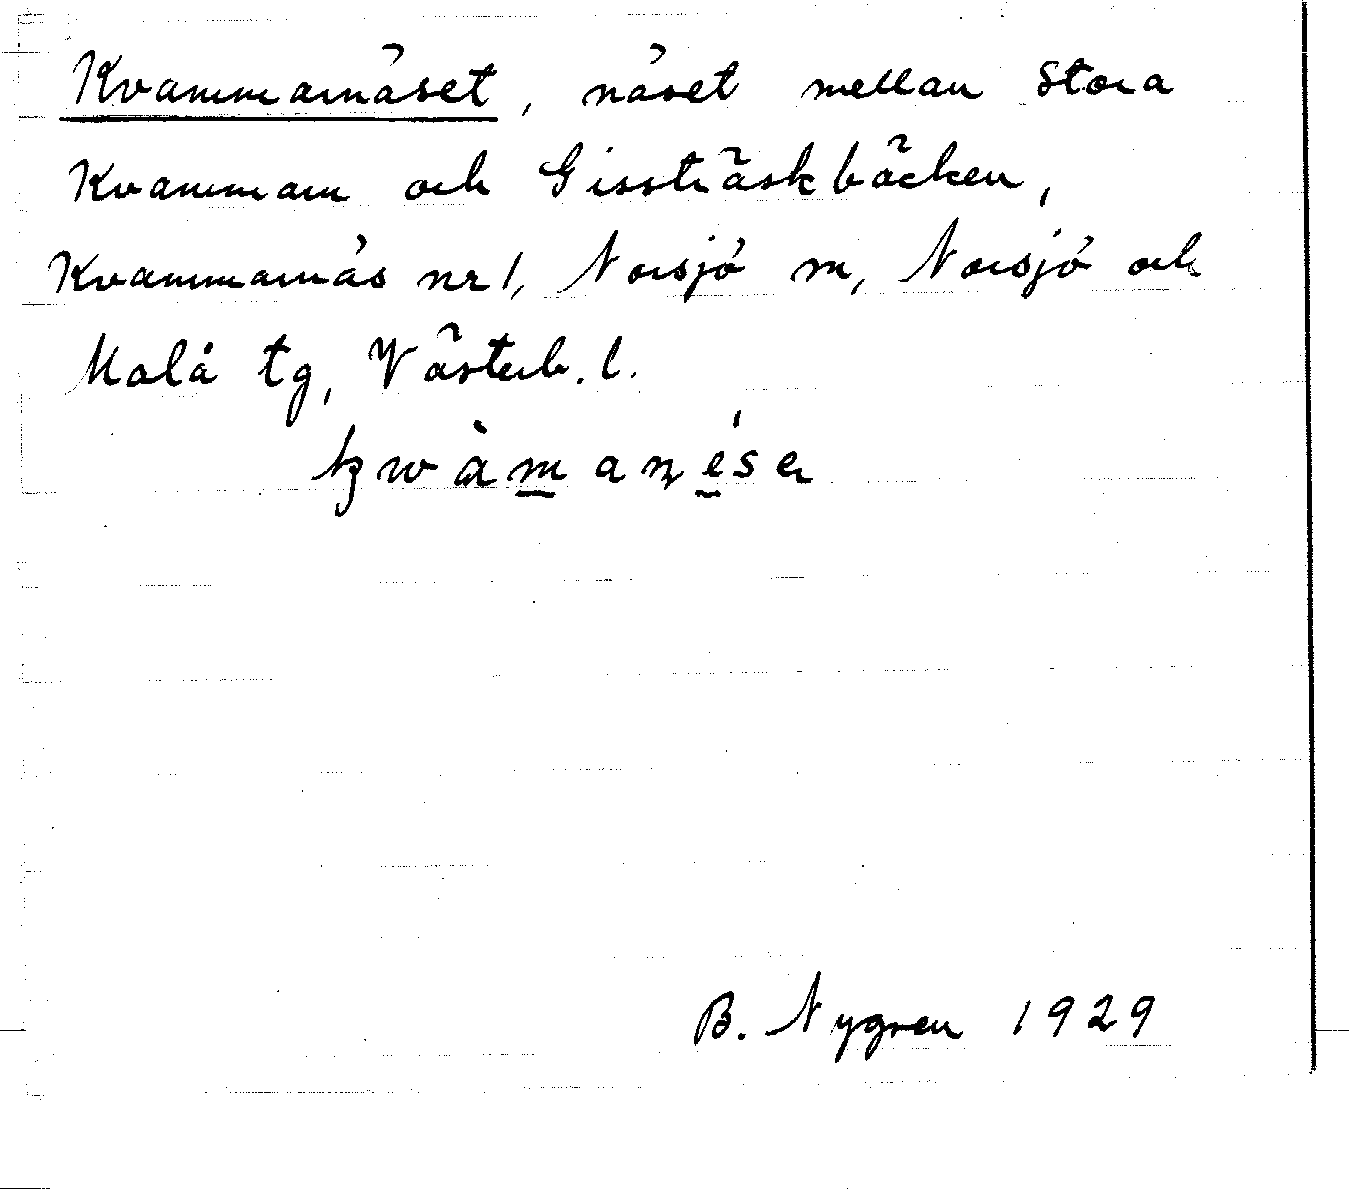 Kvammarnäset, näset mellan Stora
Kvammarn och Gissträskbäcken,
Kvammarnäs nr 1, Norsjö sn, Norsjö och
Malå tg, Västerb. l.
B. Nygren 1929